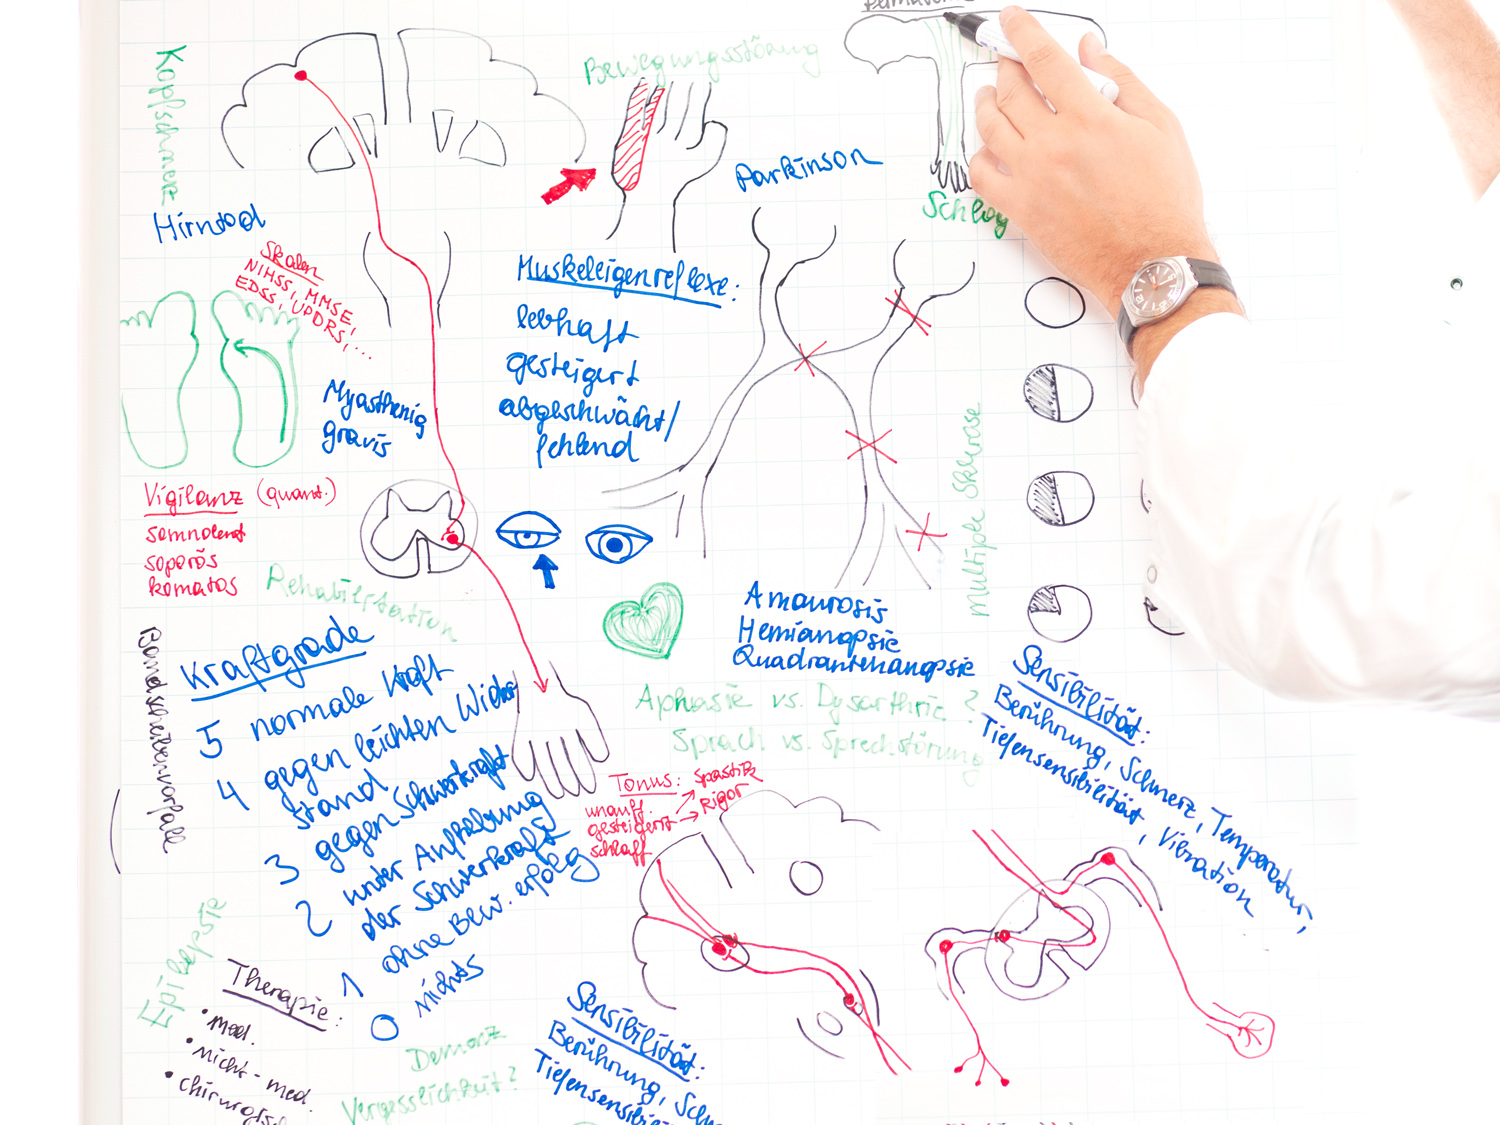 Kopfschmerz
Bewegungsstörung
Parkinson
Schlag
Hirntod
Skalen
NIHSS, MMSE,
EDSS, UPDRS, ...
Muskeleigenreflexe:
lebhaft
gesteigert
abgeschwächt/
fehlend
Myasthenia
gravis
Multiple Sklerose
Vigilanz (quant.)
somnolent
soporös
komatös
Rehabilitation
Amaurosis
Hemianopsie
Quadrantenanopsie
Bandscheibenvorfall
Kraftgrade
5 normale Kraft
4 gegen leichten Wider
stand
3 gegen Schwerkraft
2 unter Aufhebung
der Schwerkraft
1 ohne Bew. erfolg
0 nichts
Aphasie vs. Dysarthrie ?
Sprach vs. Sprechstörung
Sensibilität:
Berührung, Schmerz, Temperatur,
Tiefensensibilität, Vibration
Tonus: Spastik
unauff. Rigor
gesteigert
schlaff
Epilepsie
Therapie:
• med.
• nicht-med.
• chirurgisch
Demenz
Vergesslichkeit?
Sensibilität:
Berührung, Schm
Tiefensensibilit